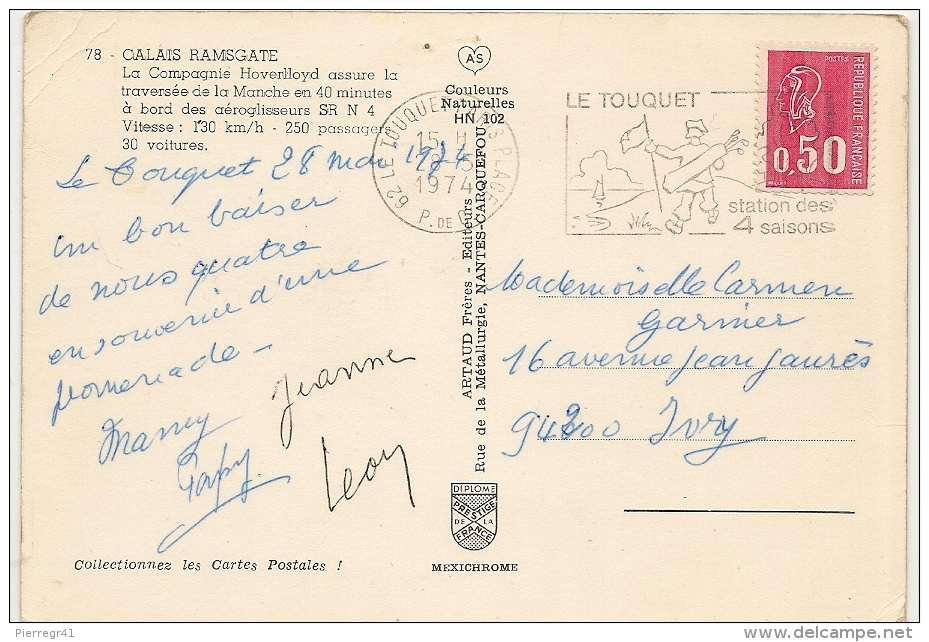 78 - CALAIS RAMSGATE
La Compagnie Hoverlloyd assure la
traversée de la Manche en 40 minutes
à bord des aéroglisseurs SR N 4
Vitesse : 130 km/h - 250 passagers
30 voitures.
Le Touquet 28 mai 1974
un bon baiser
de nous quatre
en souvenir d'une
promenade -
Mamy
Jeanne
Papy.
Leon
Collectionnez les Cartes Postales !
AS
Couleurs
Naturelles
HN 102
ARTAUD Frères - Editeurs
Rue de la Métallurgie, NANTES-CARQUEFOU
DIPLOME
PRESTIGE
DE LA
FRANCE
MEXICHROME
62 LE TOUQUET PARIS PLAGE
15 H
28-5
1974
P. DE C.
LE TOUQUET
station des
4 saisons
POSTES
REPUBLIQUE FRANÇAISE
0,50
Mademoiselle Carmen
Garnier
16 avenue Jean Jaurès
94200 Ivry
Pierregr41
delcampe.net